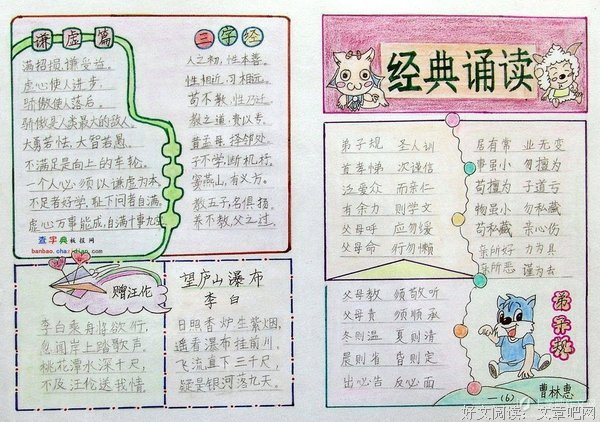 谦虚篇
满招损,谦受益。
虚心使人进步,
骄傲使人落后。
骄傲是人类最大的敌人。
大勇若怯,大智若愚。
不满足是向上的车轮。
一个人必须以谦虚为本。
不足者好学,耻下问者自满。
虚心万事能成,自满十事九空。
查字典板报网
banbao.chazidian.com
三字经
人之初,性本善。
性相近,习相远。
苟不教,性乃迁。
教之道,贵以专。
昔孟母,择邻处。
子不学,断机杼。
窦燕山,有义方。
教五子,名俱扬。
养不教,父之过。
赠汪伦
李白乘舟将欲行,
忽闻岸上踏歌声。
桃花潭水深千尺,
不及汪伦送我情。
望庐山瀑布
李白
日照香炉生紫烟,
遥看瀑布挂前川。
飞流直下三千尺,
疑是银河落九天。
经典诵读
弟子规 圣人训
首孝悌 次谨信
泛爱众 而亲仁
有余力 则学文
父母呼 应勿缓
父母命 行勿懒
居有常 业无变
事虽小 勿擅为
苟擅为 子道亏
物虽小 勿私藏
苟私藏 亲心伤
亲所好 力为具
亲所恶 谨为去
父母教 须敬听
父母责 须顺承
冬则温 夏则清
晨则省 昏则定
出必告 反必面
弟子规
一(6) 曹林惠
好文阅读:文章吧网